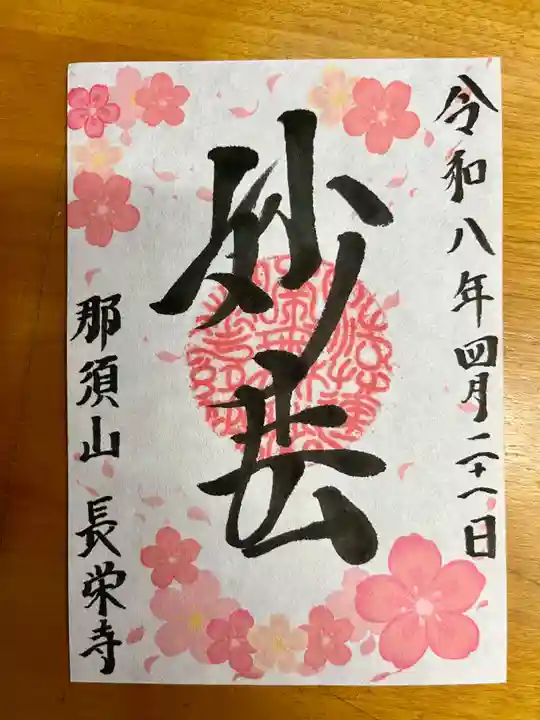 令和八年四月二十一日
妙法
那須山 長栄寺